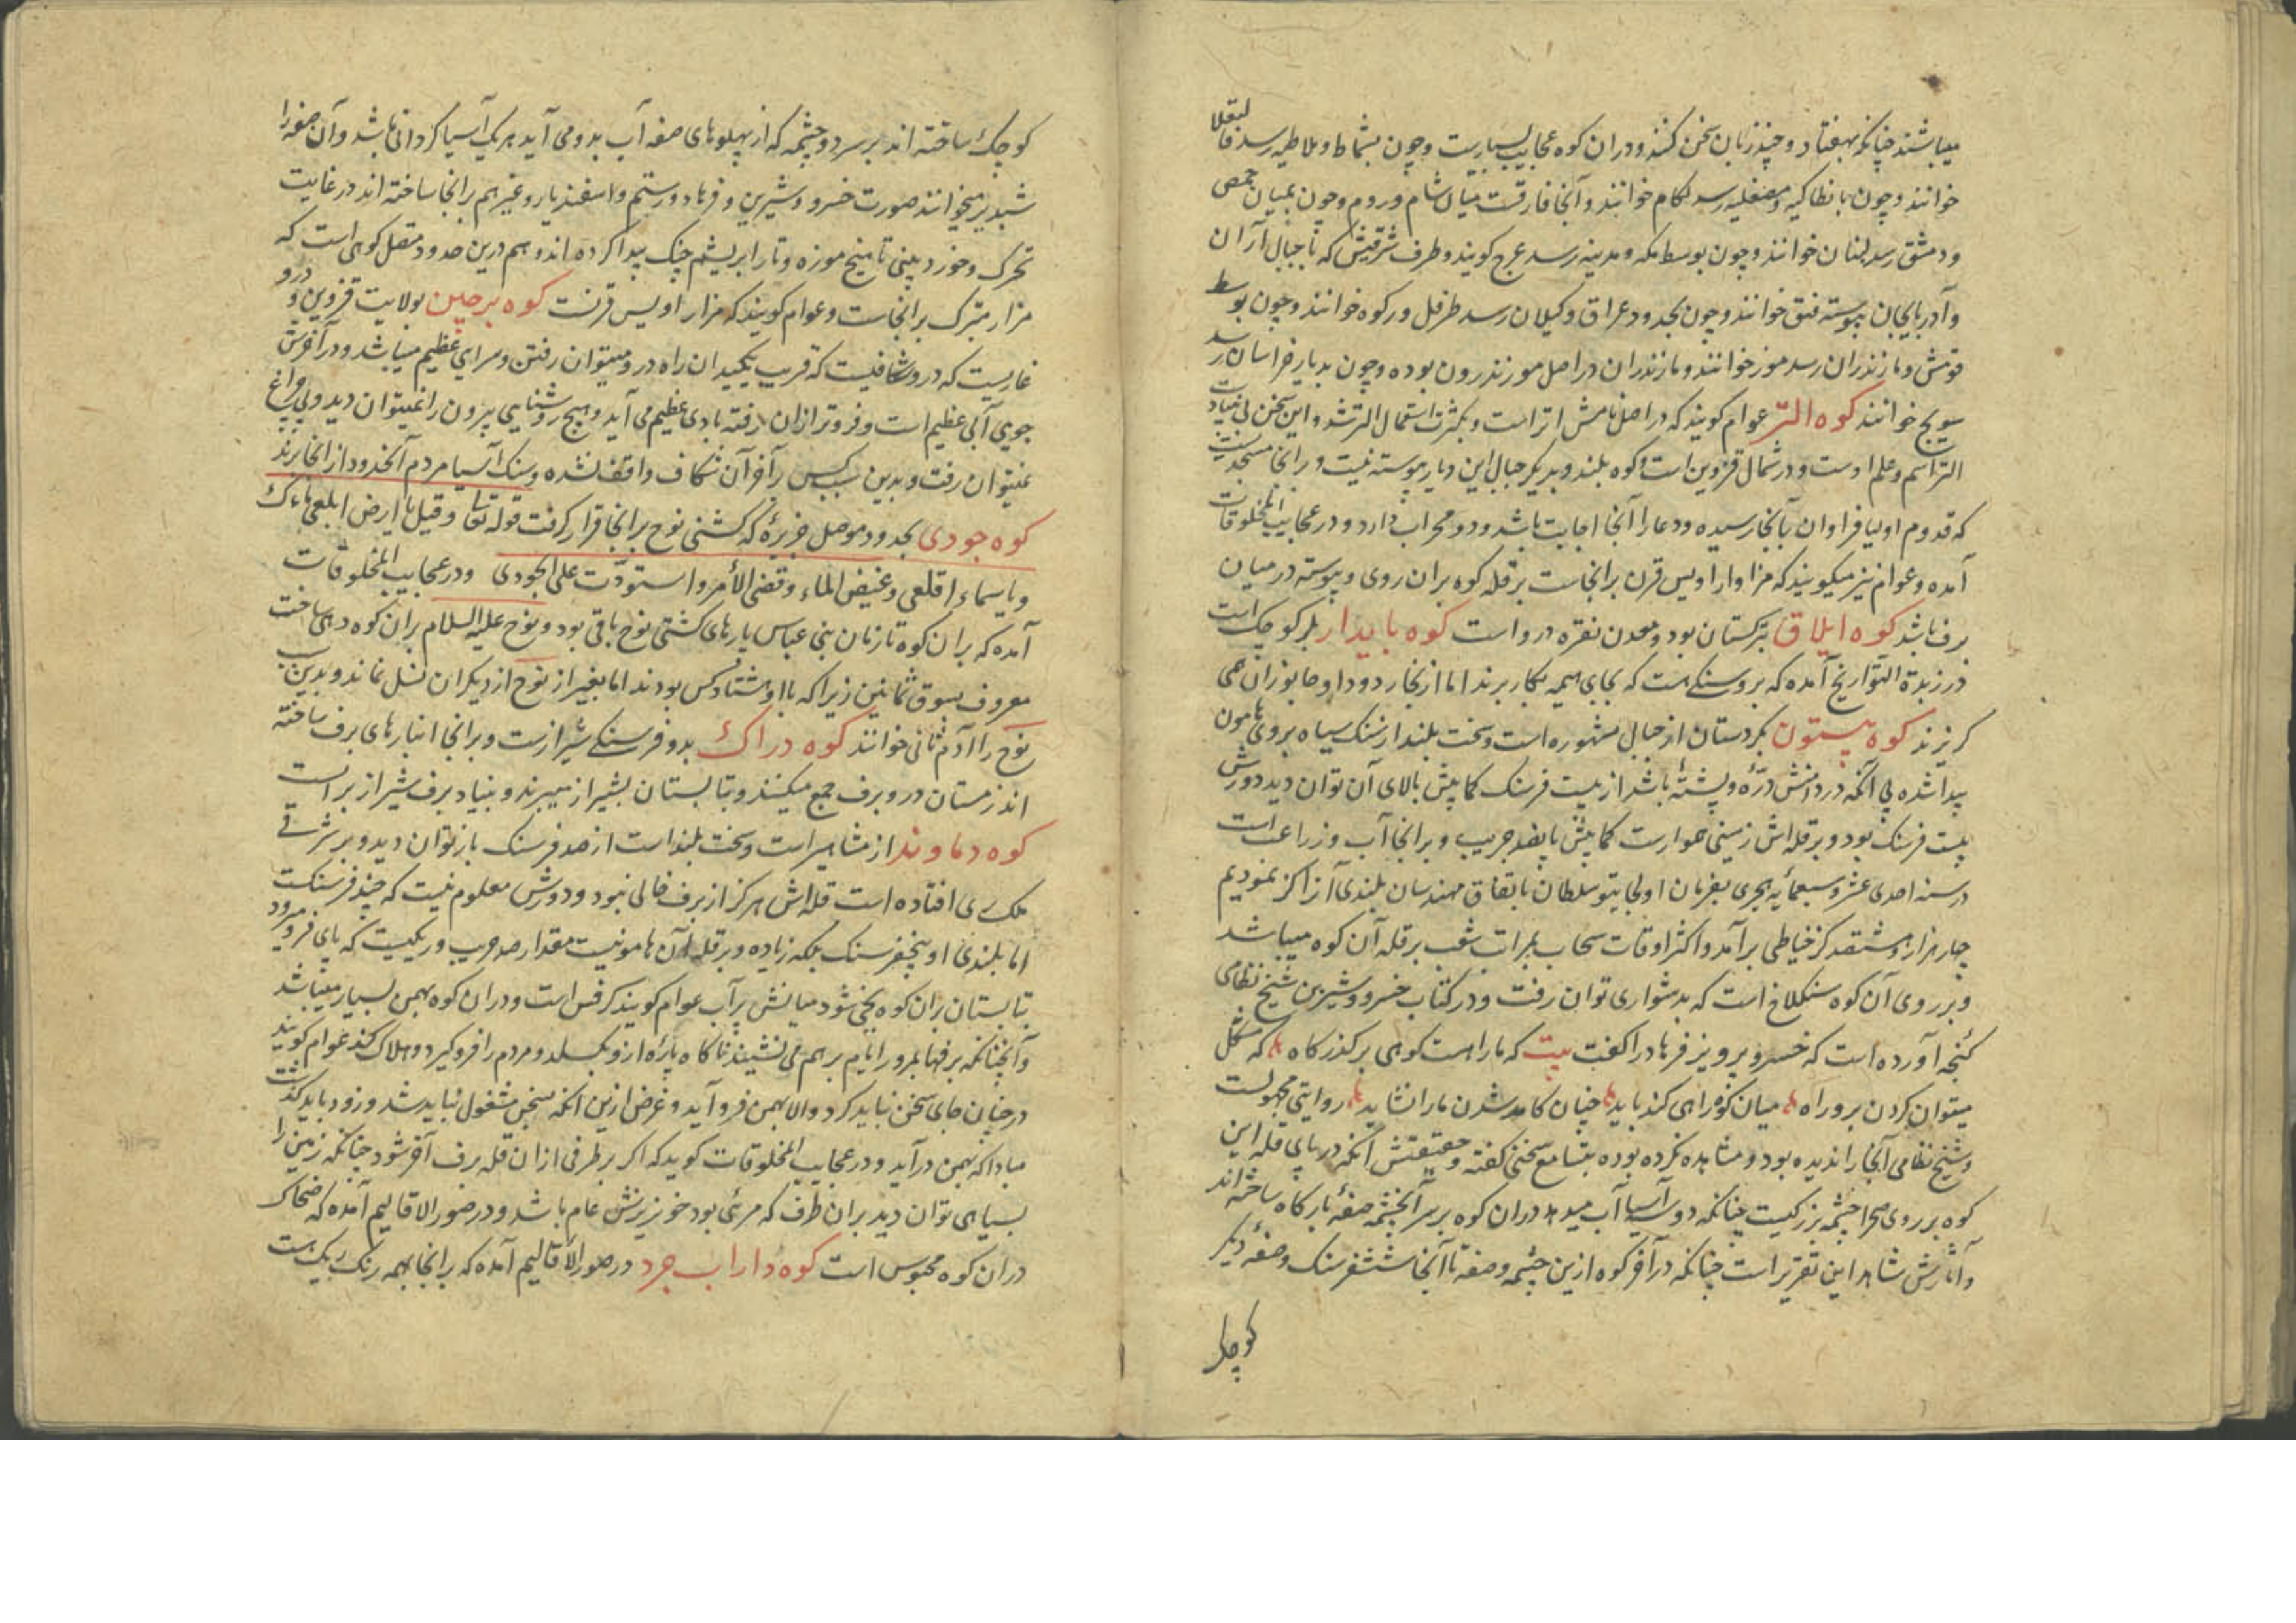 میباشند چنانکه بهفتاد و چند زبان سخن کنند و دران کوه عجایب بسیارست و چون بشماط و ملاطیه رسد قالیقلا
خوانند و چون بانطاکیه و مصقلیه رسد لکام خوانند و آنجا فارقست میان شام و روم و چون بمیان حمص
و دمشق رسد لبنان خوانند و چون بوسط مکه و مدینه رسد عرج کویند و طرف شرقیش که تا جبال آران
و آذربایجان پیوسته قبق خوانند و چون بحدود عراق و کیلان رسد طرفل ورکوه خوانند و چون بوسط
قومش و مازندران رسد موز خوانند و مازندران در اصل موزندرون بوده و چون بدیار خراسان رسد
سویج خوانند کوه التر عوام کویند که در اصل نامش اتر است و بکثرت استعمال التر شد و این سخن بی بنیادست
التر اسم و علم اوست و در شمال قزوین است و کوه بلند و بدیکر جبال این دیار پیوسته نیست و برانجا مسجدیست
که قدوم اولیا فراوان بآنجا رسیده و دعا را آنجا اجابت باشد و دو محراب دارد و در عجایب المخلوقات
آمده و عوام نیز میکویند که مزار اویس قرن برانجاست بر قله کوه بران روی و پیوسته در میان
برف باشد کوه ایلاق بترکستان بود و معدن نقره درو است کوه بایدار بلر کوچک است
در زبدة التواریخ آمده که برو سنکی هست که بجای هیمه بکار برند اما از بخار دود او جانوران همی
کریزند کوه بیستون بکردستان از جبال مشهوره است و سخت بلند از سنک سیاه بروی هامون
پیدا شده بی آنکه در دامنش درّه و پشته باشد از بیست فرسنک کمابیش بالای آن توان دید دورش
بیست فرسنک بود و بر قله اش زمینی هموارست کمابیش پانصد جریب و برانجا آب و زراعت است
در سنه احدی عشر و سبعمائه هجری بفرمان اولجایتو سلطان باتفاق مهندسان بلندی آنرا کز نمودیم
چهار هزار و ششصد کز خیاطی برآمد و اکثر اوقات سحاب بمرات شعب بر قله آن کوه میباشد
و بر روی آن کوه سنکلاخ است که بدشواری توان رفت و در کتاب خسرو و شیرین شیخ نظامی
کنجه آورده است که خسرو پرویز فرهاد را کفت بیت که ما را هست کوهی بر کذرکاه که مشکل
میتوان کردن برو راه میان کوه راهی کند باید چنان کامد شدن ما را شاید روایتی مجهولست
و شیخ نظامی آنجا را ندیده بود و مشاهده نکرده بوده بتسامع سخنی کفته و حقیقتش آنکه در پای قله این
کوه بر روی صحرا چشمه بزرکیست چنانکه دو سه آسیا آب میدهد دران کوه بر سر آنچشمه صفه بارکاه ساخته اند
و آثارش شاهد این تقریر است چنانکه در آخر کوه ازین چشمه و صفه تا آنجا ششفرسنک و صفه دیکر
کوچک
کوچک ساخته اند بر سر دو چشمه که از پهلوهای صفه آب بدو می آید هر یک آسیا کردانی باشد و آن صفه را
شبدیز میخوانند صورت خسرو و شیرین و فرهاد و رستم و اسفندیار و غیرهم برانجا ساخته اند در غایت
تحرک و خورد بینی تا میخ موزه و تار ابریشم چنک پیدا کرده اند و هم درین حدود متصل کوهی است که
مزار متبرک برانجاست و عوام کویند که مزار اویس قرنست کوه برجین بولایت قزوین و درو
غاریست که درو شکافیست که قریب یکمیدان راه درو میتوان رفتن و سرایی عظیم میباشد و در آخرش
جوی آبی عظیم است و فروتر از ان رفته بادی عظیم می آید و هیچ روشنایی بیرون را نمیتوان دید و بی چراغ
نمیتوان رفت و بدین سبب کس را آخر آن شکاف واقف نشده و سنک آسیا مردم آنحدود از انجا برند
کوه جودی بحدود موصل جزیره که کشتی نوح برانجا قرار کرفت قوله تعا و قیل یا ارض ابلعی ماءک
و یا سماء اقلعی و غیض الماء و قضی الأمر و استوت علی الجودی و در عجایب المخلوقات
آمده که بران کوه تا زمان بنی عباس پارهای کشتی نوح باقی بود و نوح علیه السلام بران کوه دهی ساخت
معروف بسوق ثمانین زیرا که با او هشتاد کس بودند اما بغیر از نوح از دیکران نسل نماند و بدین سبب
نوح را آدم ثانی خوانند کوه دراک بدو فرسنکی شیرازست و برانجا انبارهای برف ساخته
اند زمستان درو برف جمع میکنند و بتابستان بشیراز میبرند و بنیاد برف شیراز بر است
کوه دماوند از مشاهیر است و سخت بلند است از صد فرسنک باز توان دید و بر شرقی
ملک ری افتاده است قله اش هرکز از برف خالی نبود و دورش معلوم نیست که چند فرسنکست
اما بلندی او پنجفرسنک بلکه زیاده و بر قله آن هامونیست مقدار صد جریب و ریکیست که پای فرو میرود
تابستان بران کوه یخی شود میانش پر آب عوام کویند کرفس است و دران کوه بهمن بسیار میباشد
و آنچنانکه برفها بمرور ایام بر هم می نشیند ناکاه پاره ازو بکسلد و مردم را فرو کیرد و هلاک کند عوام کویند
در چنان جای سخن نباید کرد والا بهمن فرو آید و غرض ازین آنکه بسخن مشغول نباید شد و زود باید کذشت
مبادا که بهمن درآید و در عجایب المخلوقات کوید که اکر بر طرفی از ان قله برف آخر شود چنانکه زمین را
بسیاهی توان دید بران طرف که مرئی بود خونریزش عام باشد و در صور الاقالیم آمده که ضحاک
دران کوه محبوس است کوه داراب جرد در صور الأقالیم آمده که برانجا همه رنک ریک هست